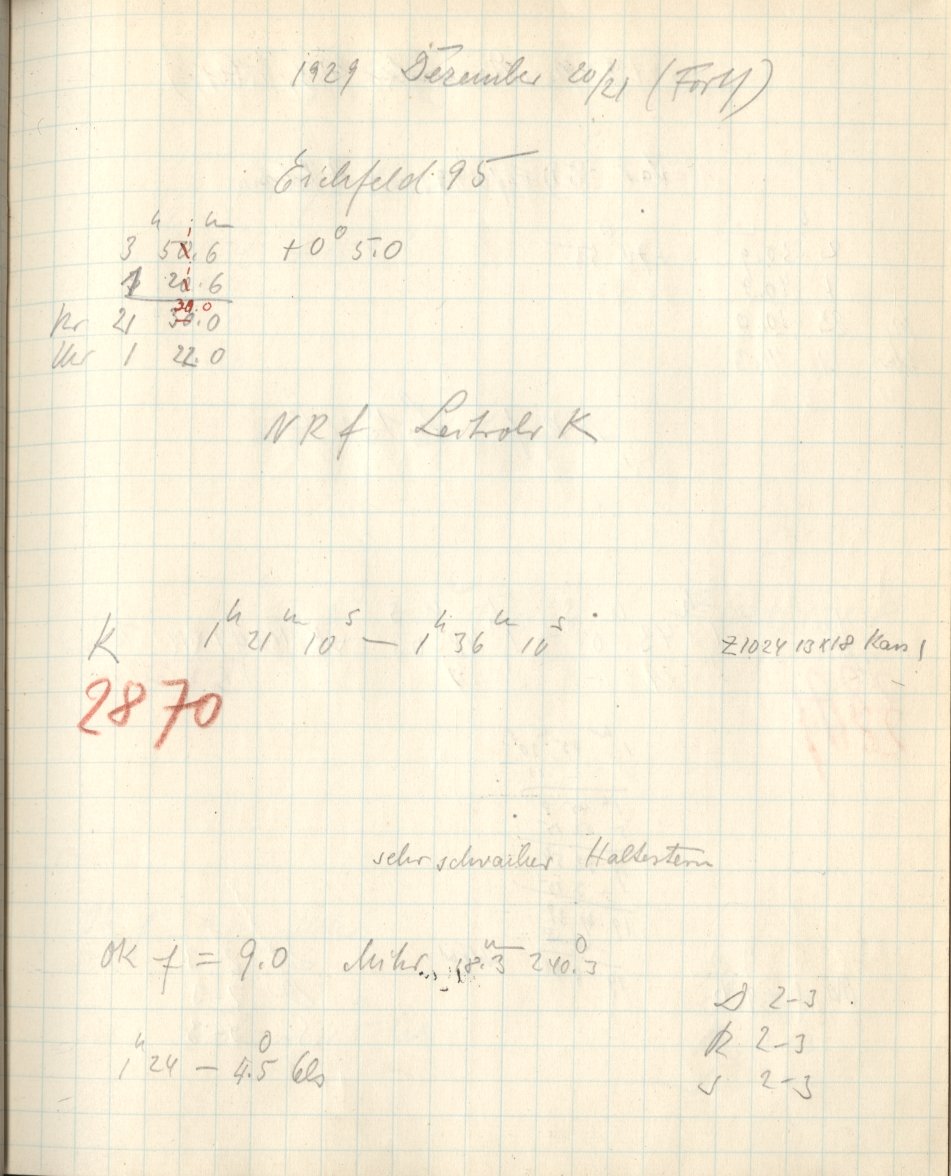 1929 Dezember 20/21 (Forts)
Eichfeld 95
h m
3 50.6 +0° 5.0
1 20.6
30.0
Kr 21 30.0
Uhr 1 22.0
NRf Leitrohr K
K 1h 21m 10s — 1h 36m 10s Z1024 13x18 Kass 1
2870
sehr schwacher Haltestern
OK f = 9.0 Mikr 18.3 240.3
D 2-3
R 2-3
1h 24 — 4.5° Cls
s 2-3